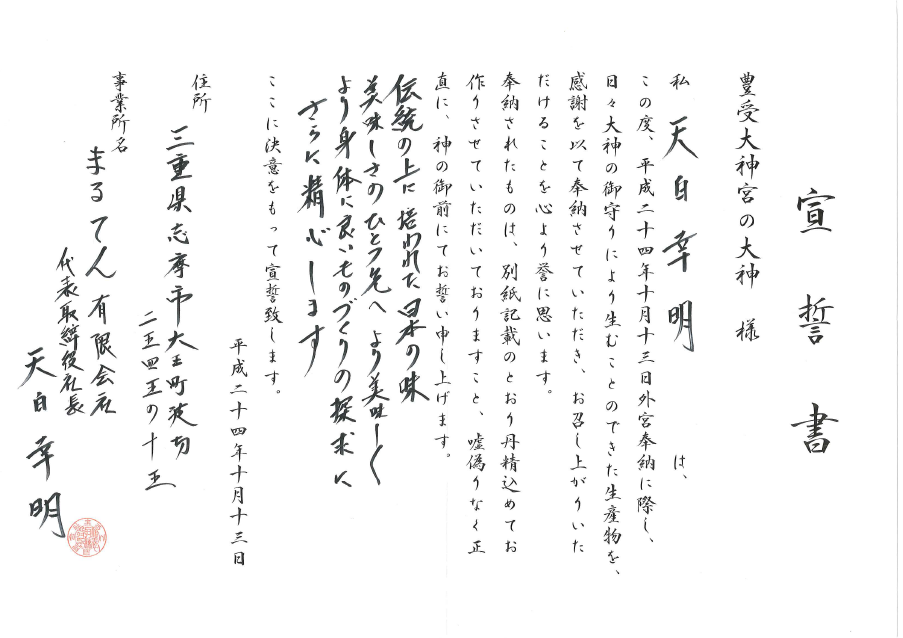 宣誓書
豊受大神宮の大神 様
私 天白幸明 は、
この度、平成二十四年十月十三日外宮奉納に際し、
日々大神の御守りにより生むことのできた生産物を、
感謝を以て奉納させていただき、お召し上がりいた
だけることを心より誉に思います。
奉納されたものは、別紙記載のとおり丹精込めてお
作りさせていただいておりますこと、嘘偽りなく正
直に、神の御前にてお誓い申し上げます。
伝統の上に培われた日本の味
美味しさのひとつ先へ より美味しく
より身体に良いものづくりの探求に
さらに精心します
ここに決意をもって宣誓致します。
平成二十四年十月十三日
住所 三重県志摩市大王町波切
二五四五の十五
事業所名 まるてん有限会社
代表取締役社長
天白幸明